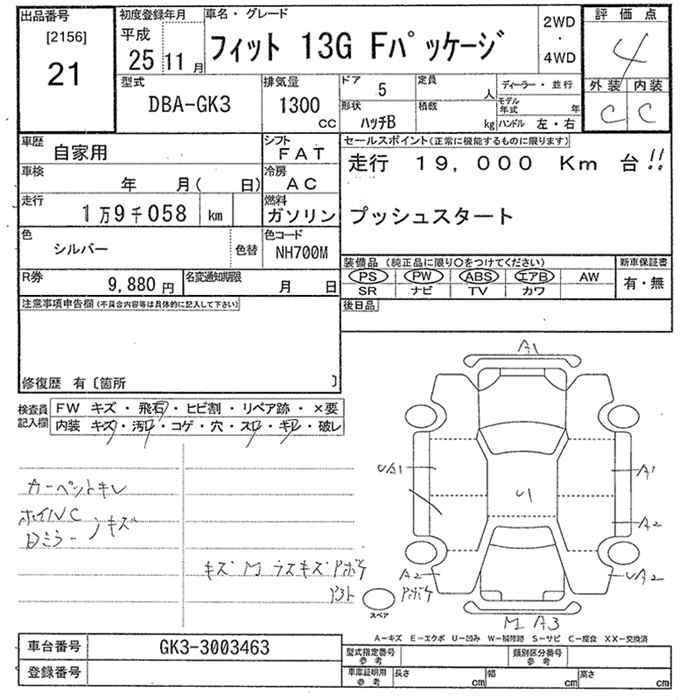 出品番号
[2156]
21
初度登録年月
平成
25 11 月
車名・グレード
フィット 13G Fパッケージ
2WD
・
4WD
評価点
4
外装 内装
C C
型式
DBA-GK3
排気量
1300
CC
ドア
5
定員
人
ディーラー・並行
形状
ハッチB
積数
kg
モデル年式
年
ハンドル 左・右
車歴
自家用
シフト
FAT
車検
年 月( 日)
冷房
AC
走行
1万9千058 km
燃料
ガソリン
色
シルバー
色替
色コード
NH700M
R券
9,880 円
名変通知期限
月 日
セールスポイント(正常に機能するものに限ります)
走行 19,000 Km 台!!
プッシュスタート
装備品 (純正品に限り○をつけてください)
PS PW ABS エアB AW
SR ナビ TV カワ
新車保証書
有・無
後日品
注意事項申告欄(不具合内容等は具体的に記入して下さい)
修復歴 有〔箇所 〕
検査員
記入欄
FW キズ・飛石・ヒビ割・リペア跡・×要
内装 キズ・汚レ・コゲ・穴・スレ・キレ・破レ
カーペットキレ
ホイルC
Bミラー
キズ
キズ M ラスキズ アポケ
A1
UA1
A1
U
A2
A2
UA2
アポケ
スペア
M A3
A-キズ E-エクボ U-凹み W-補修跡 S-サビ C-腐食 XX-交換済
車台番号
GK3-3003463
登録番号
型式指定番号
参考
類別区分番号
参考
車庫証明用
参考
長さ
cm
幅
cm
高さ
cm